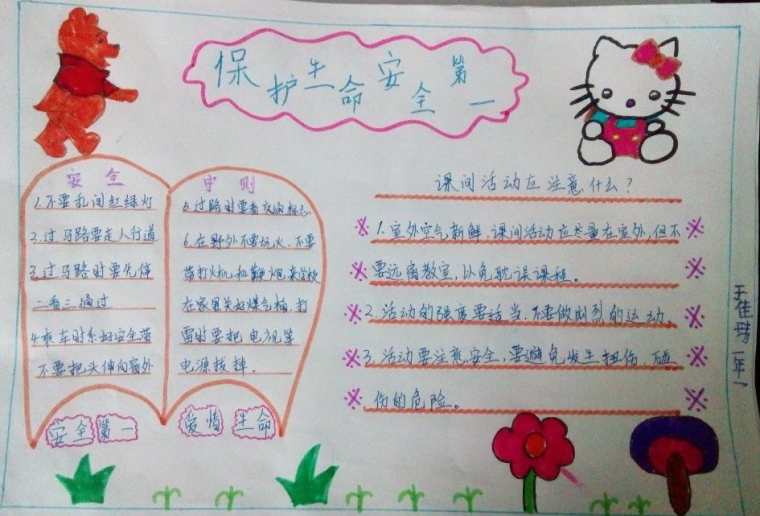 保护生命安全第一
安全
守则
1.不要乱闯红绿灯
2.过马路要走人行道
3.过马路时要先停
二看三通过
4.乘车时系好安全带
不要把头伸向窗外
5.过路时要看交通标志
6.在野外不要玩火.不要
带打火机和鞭炮来学校
在家里关好煤气桶,打
雷时要把电视等
电源拔掉。
安全第一
爱惜生命
课间活动应注意什么?
1.室外空气新鲜,课间活动应尽量在室外,但不
要远离教室,以免耽误课程。
2.活动的强度要适当,不要做剧烈的运动。
3.活动要注意安全,要避免发生扭伤、碰
伤的危险。
一年一